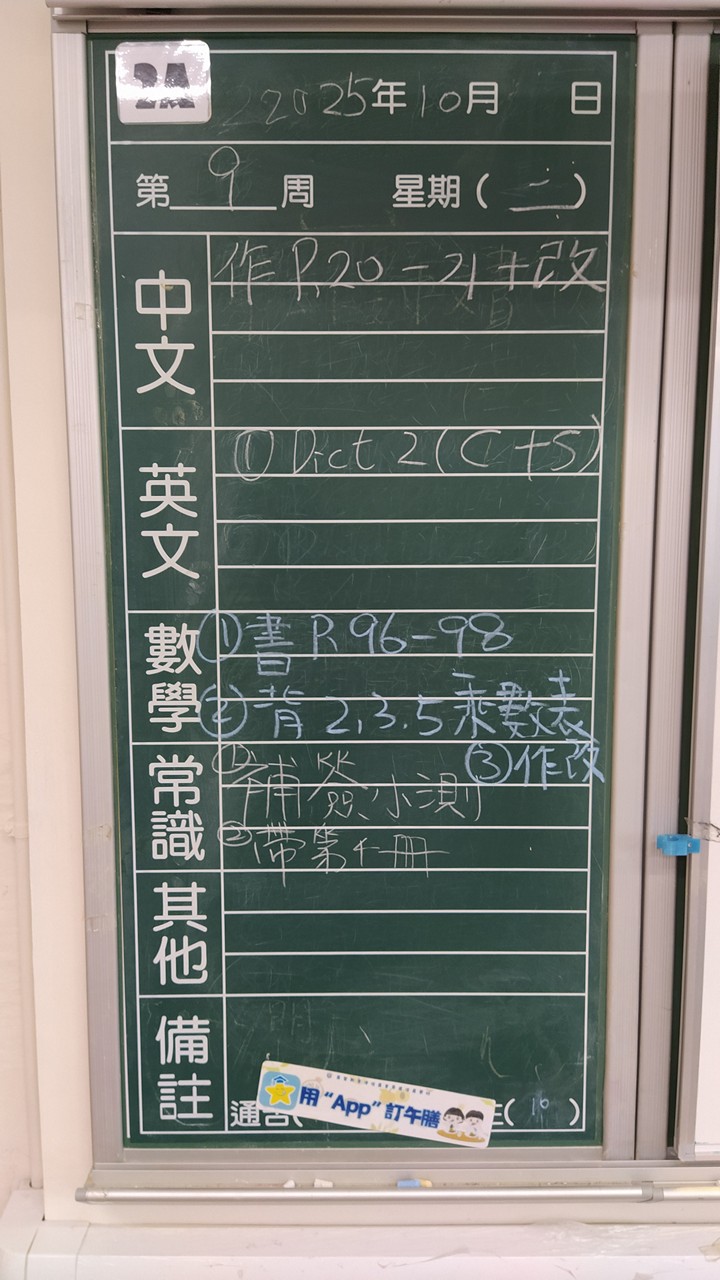 2A
2025年10月 日
第9周 星期(二)
中文
作 P.20-21+改
英文
① Dict 2 (C+S)
數學
①書 P.96-98
②背 2,3.5 乘數表
③作改
常識
①補簽小測
②帶第4冊
其他
備註
用“App”訂午膳
通告(
(10)